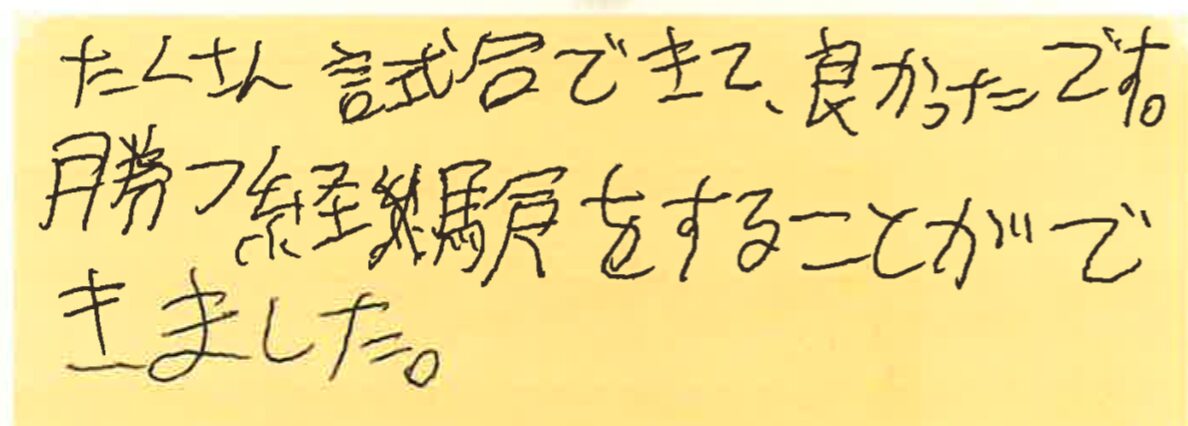 たくさん試合できて、良かったです。
勝つ経験をすることがで
きました。